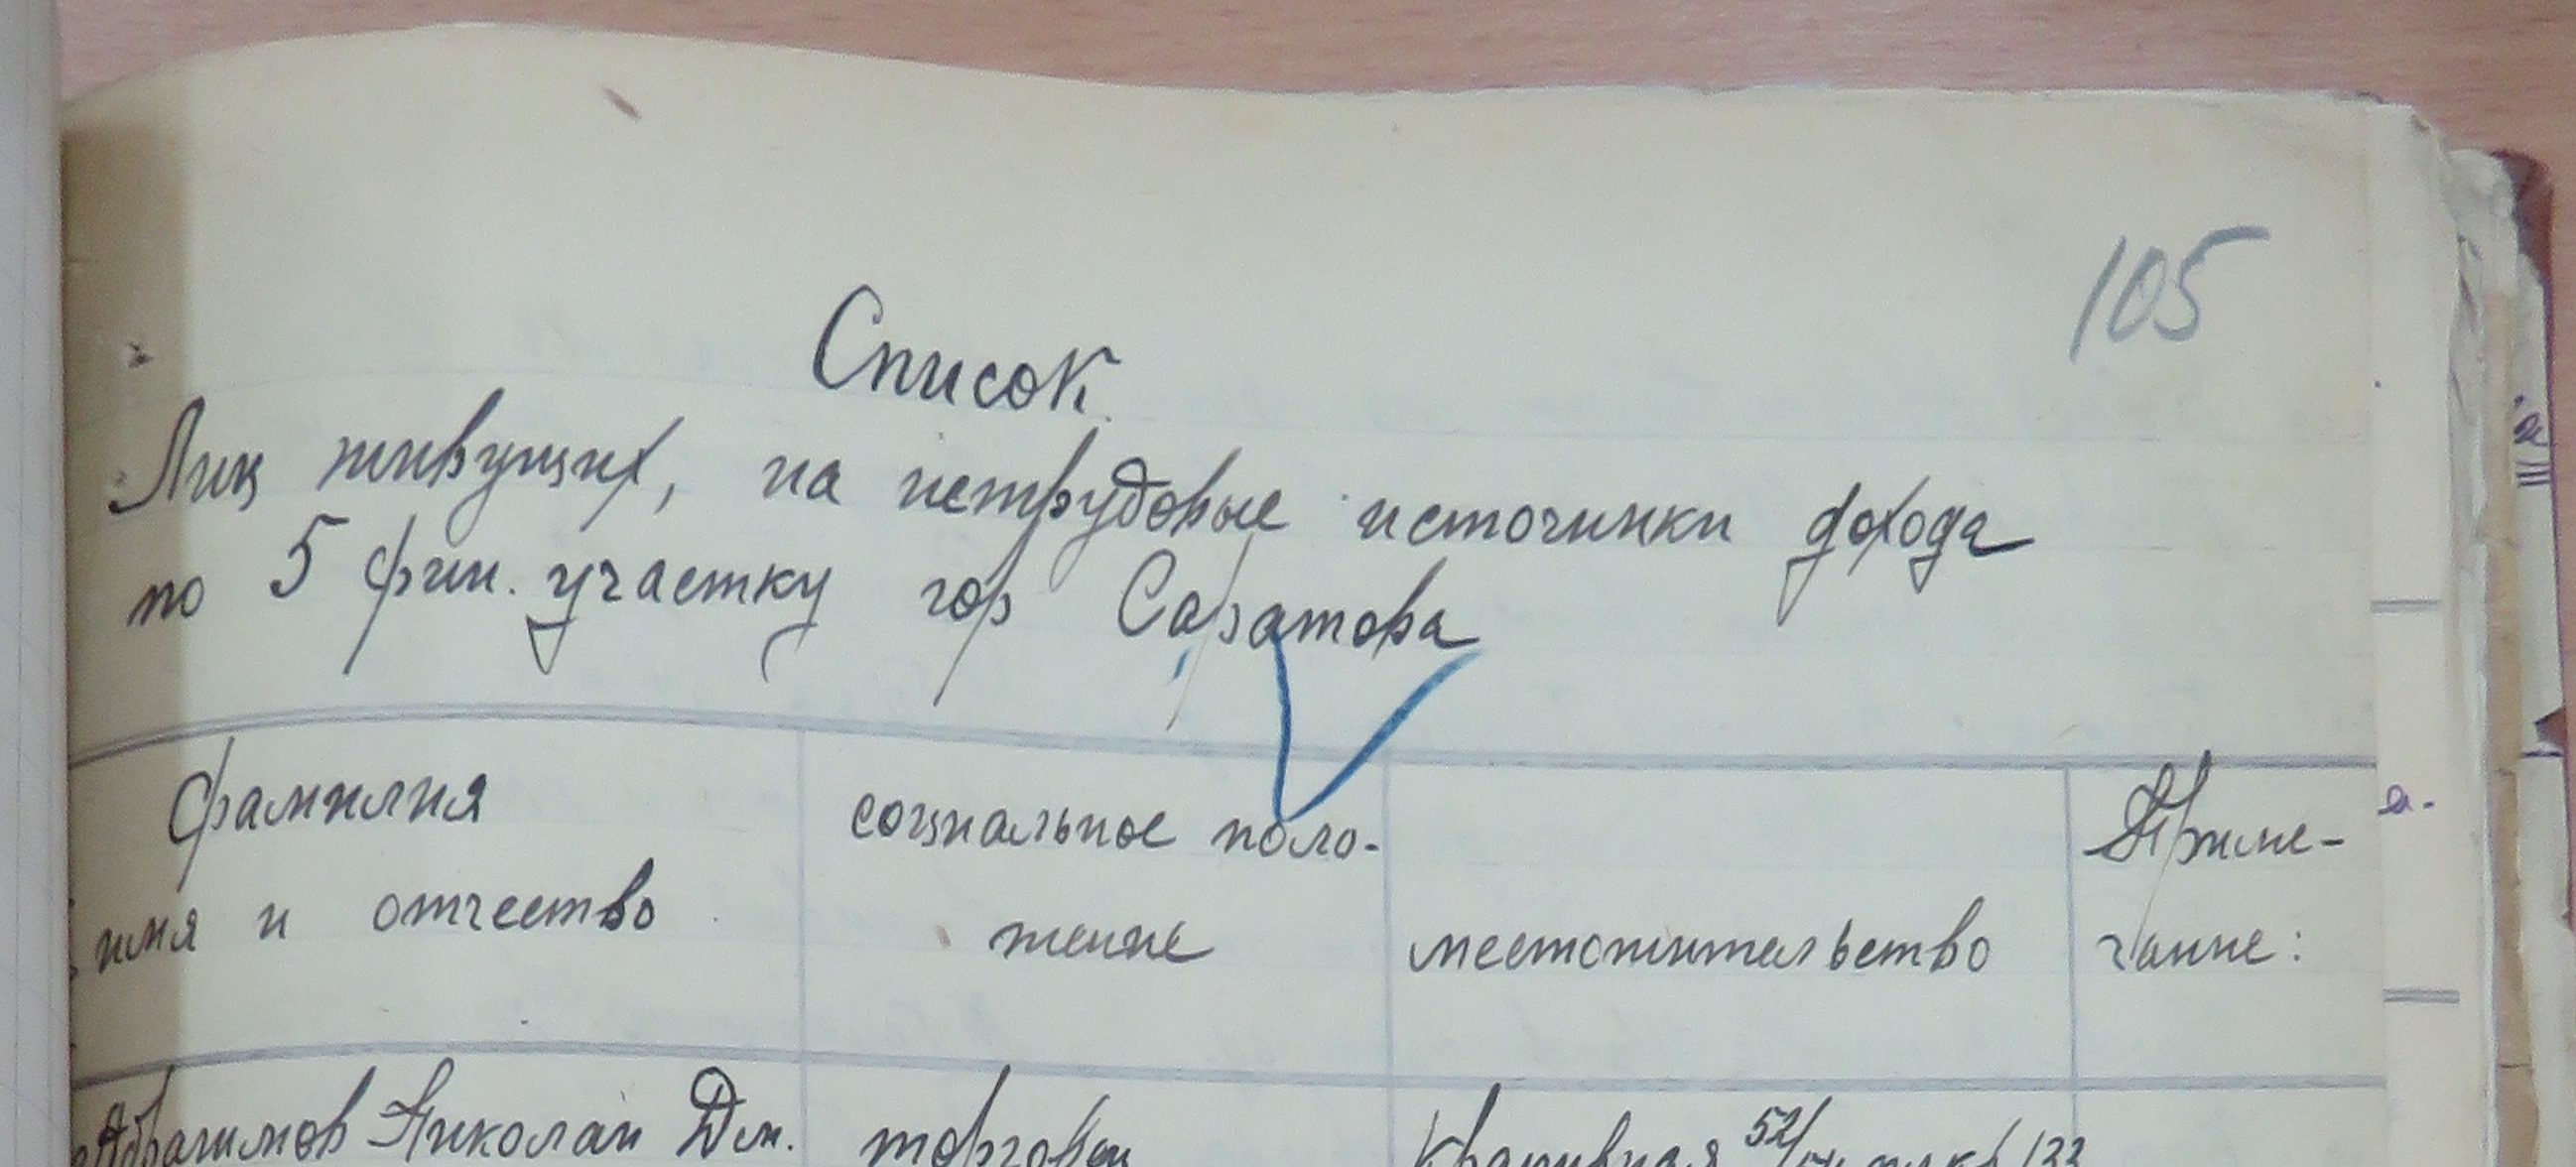 105
Список
Лиц живущих, на нетрудовые источники дохода
по 5 фин. участку гор Саратова
Фамилия
имя и отчество
социальное поло-
жение
местожительство
Приме-
чание:
Абрагимов Николай Дм.
торговец
Крапивная 52/54 кв 133
а.